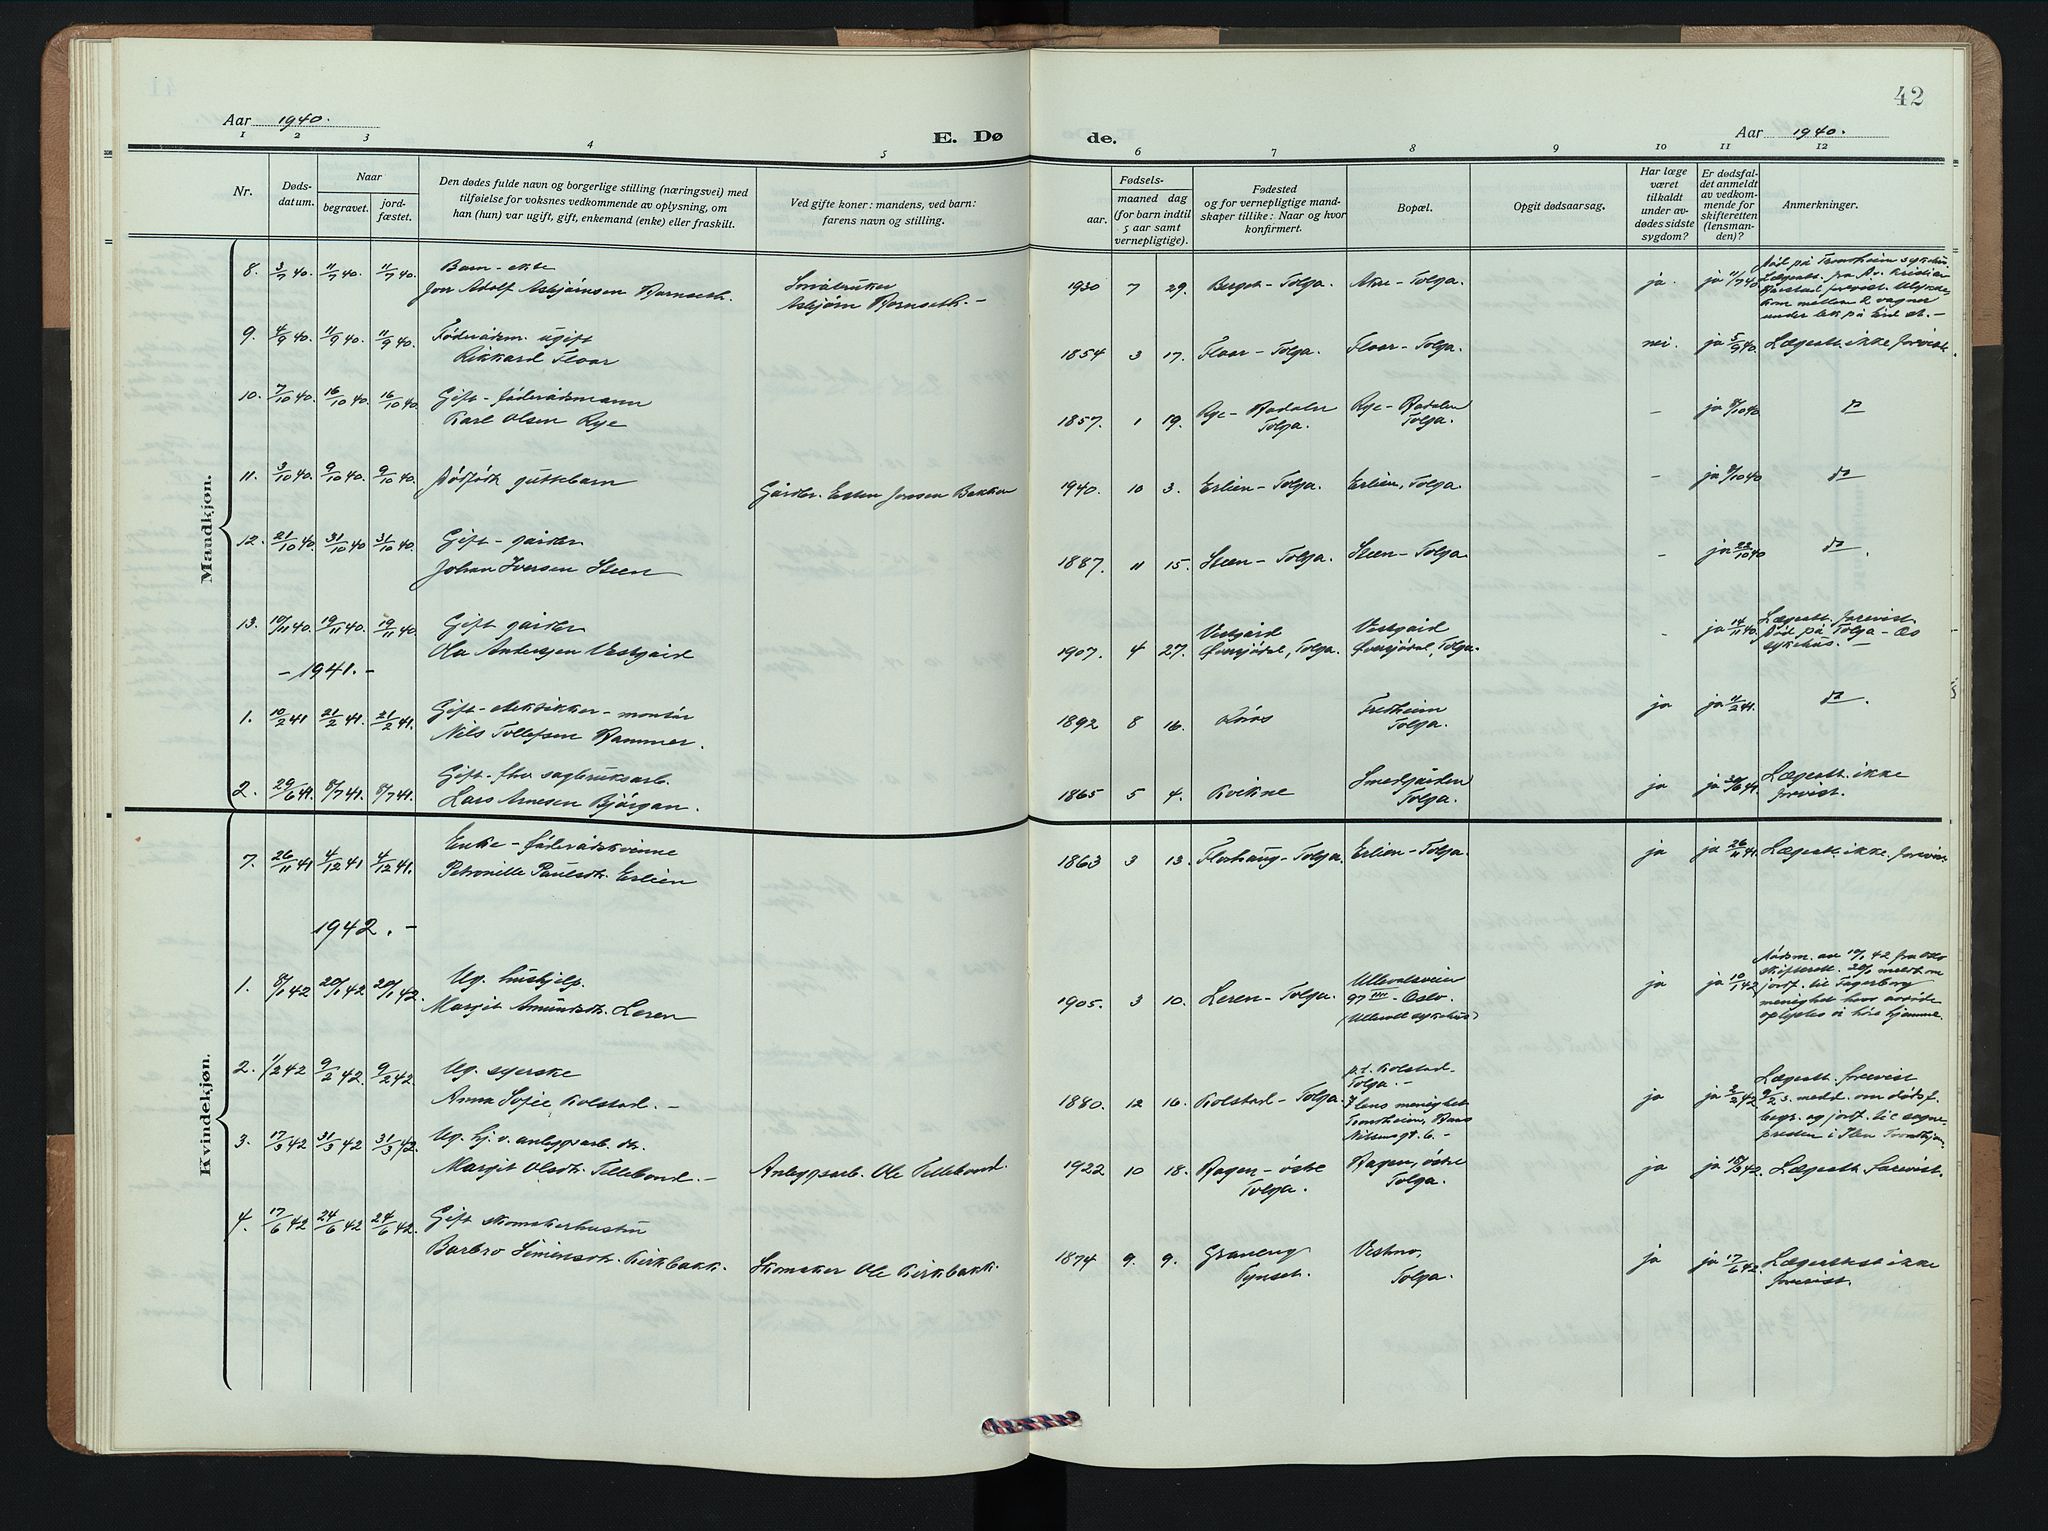 42
Aar 1940.
E. Dø
de.
Aar 1940.
1 2 3 4 5 6 7 8 9 10 11 12
Nr.
Døds-
datum.
Naar
begravet.
jord-
fæstet.
Den dødes fulde navn og borgerlige stilling (næringsvei) med
tilføielse for voksnes vedkommende av oplysning, om
han (hun) var ugift, gift, enkemand (enke) eller fraskilt.
Ved gifte koner: mandens, ved barn:
farens navn og stilling.
Fødsels-
aar.
maaned dag
(for barn indtil
5 aar samt
vernepligtige).
Fødested
og for vernepligtige mand-
skaper tillike: Naar og hvor
konfirmert.
Bopæl.
Opgit dødsaarsag.
Har læge
været
tilkaldt
under av-
dødes sidste
sygdom?
Er dødsfal-
det anmeldt
av vedkom-
mende for
skifteretten
(lensman-
den)?
Anmerkninger.
Mandkjøn.
8. 3/7 40. 11/7 40. 11/7 40. Barn - ekte
Jon Adolf Asbjørnsen
Småbruker
Asbjørn
1930 7 29. Berget - Tolga. Tolga. ja. ja 11/7 40
Død på Trondheim sykehus.
9. 4/9 40. 11/9 40. 11/9 40. Føderådsm. ugift
Rikkard Floor
1854 3 17. Floor - Tolga. Floor - Tolga. nei. ja 5/9 40. Lægeatt. ikke forevist.
10. 7/10 40. 16/10 40. 16/10 40. Gift - føderådsmann
Karl Olsen Rye
1857. 1 19. Rye - Tolga. Rye - Tolga. - ja 8/10 40 do
11. 3/10 40. 9/10 40. 9/10 40. Dødfødt guttebarn
Gårdbr. Esten Jonsen Bakken
1940. 10 3. Erlien - Tolga. Erlien, Tolga. - ja 8/10 40 do
12. 21/10 40. 31/10 40. 31/10 40. Gift - gårdbr.
Johan Iversen Steen
1887. 11 15. Steen - Tolga. Steen - Tolga. - ja 22/10 40 do.
13. 10/11 40. 19/11 40. 19/11 40. Gift gårdbr.
Ola Anderssen Vestgård
1907. 4 27. Vestgård
Øversjødal, Tolga. Vestgård
Øversjødal, Tolga. - ja 14/11 40. Lægeatt. forevist.
Død på Tolga - Os
sykehus. -
- 1941. -
1. 10/2 41 21/2 41. 21/2 41. Gift - elektriker - montør
Nils Tollefsen
1892 8 16. Røros Fredheim
Tolga. ja ja 11/2 41. do.
2. 29/6 41. 8/7 41. 8/7 41. Gift - fhv. sagbruksarb.
Lars Arnesen Bjørgan.
1865 5 4. Kvikne Smedgården
Tolga. ja ja 30/6 41. Lægeatt. ikke
forevist.
Kvindekjøn.
7. 26/11 41 4/12 41 4/12 41. Enke - føderådskvinne
Petronille Paulsdtr. Erlien
1863 3 13. Florhaug - Tolga. Erlien - Tolga. ja ja 26/11 41. Lægeatt. ikke forevist
1942. -
1. 8/1 42 20/1 42 20/1 42. Ug. hushjelp.
Margit Amundsdtr. Leren
1905. 3 10. Leren - Tolga. Ullevålsveien
97 - Oslo.
(Ullevål sykehus) ja ja 10/1 42
Dødsm. av 10/1 42 fra Oslo
skifterett. 20/1 meldt om
jordf. til Fagerborg
menighet hvor avdøde
oplystes å høre hjemme.
2. 1/2 42 9/2 42 9/2 42 Ug. syerske
Anna Sofie Kolstad. -
1880. 12 16. Kolstad - Tolga. p.t. Kolstad.
Tolga. -
Ilens menighet
Trondheim,
ja ja 2/2 42 Lægeatt. forevist
9/2 s. medd. om dødsf.
begr. og jordf. til sogne-
presten i Ilen Trondhjem.
3. 17/3 42 31/3 42 31/3 42. Ug. hj. v. anleggsarb. dtr.
Margit Olsdtr. Tellebond. - Anleggsarb. Ole Tellebond.
1922 10 18. østre
Tolga. østre
Tolga. ja ja 18/3 42. Lægeatt. forevist.
4. 17/6 42 24/6 42 24/6 42. Gift skomakerhustru
Barbro Simensdtr. Kirkbakk. Skomaker Ole Kirkbakk.
1874 9. 9. Graneng
Tynset. Vestmo,
Tolga. ja ja 17/6 42. Lægeattest ikke
forevist.